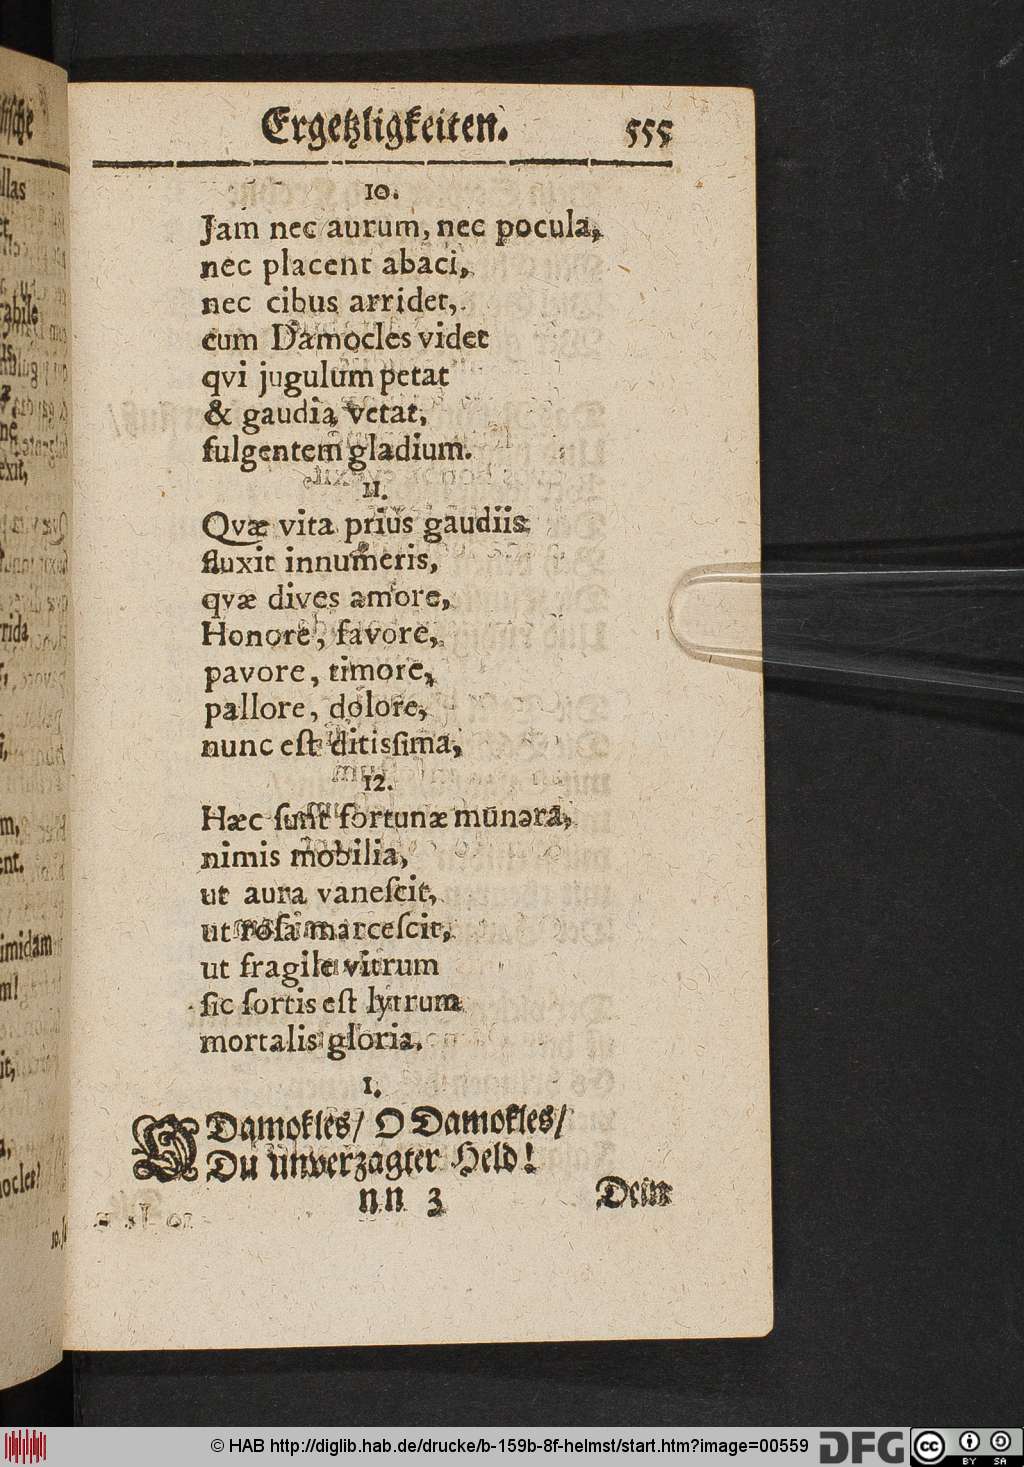 Ergetzligkeiten. 555
10.
Jam nec aurum, nec pocula,
nec placent abaci,
nec cibus arridet,
cum Damocles videt
qvi jugulum petat
& gaudia vetat,
fulgentem gladium.
11.
Qvæ vita prius gaudiis
fluxit innumeris,
qvæ dives amore,
Honore, favore,
pavore, timore,
pallore, dolore,
nunc eſt ditisſima,
12.
Hæc ſunt fortunæ munera,
nimis mobilia,
ut aura vaneſcit,
ut roſa marceſcit,
ut fragile vitrum
ſic ſortis eſt lytrum
mortalis gloria.
1.
O Damokles/ O Damokles/
Du unverzagter Held!
nn 3 Dein
© HAB http://diglib.hab.de/drucke/b-159b-8f-helmst/start.htm?image=00559 DFG cc BY SA